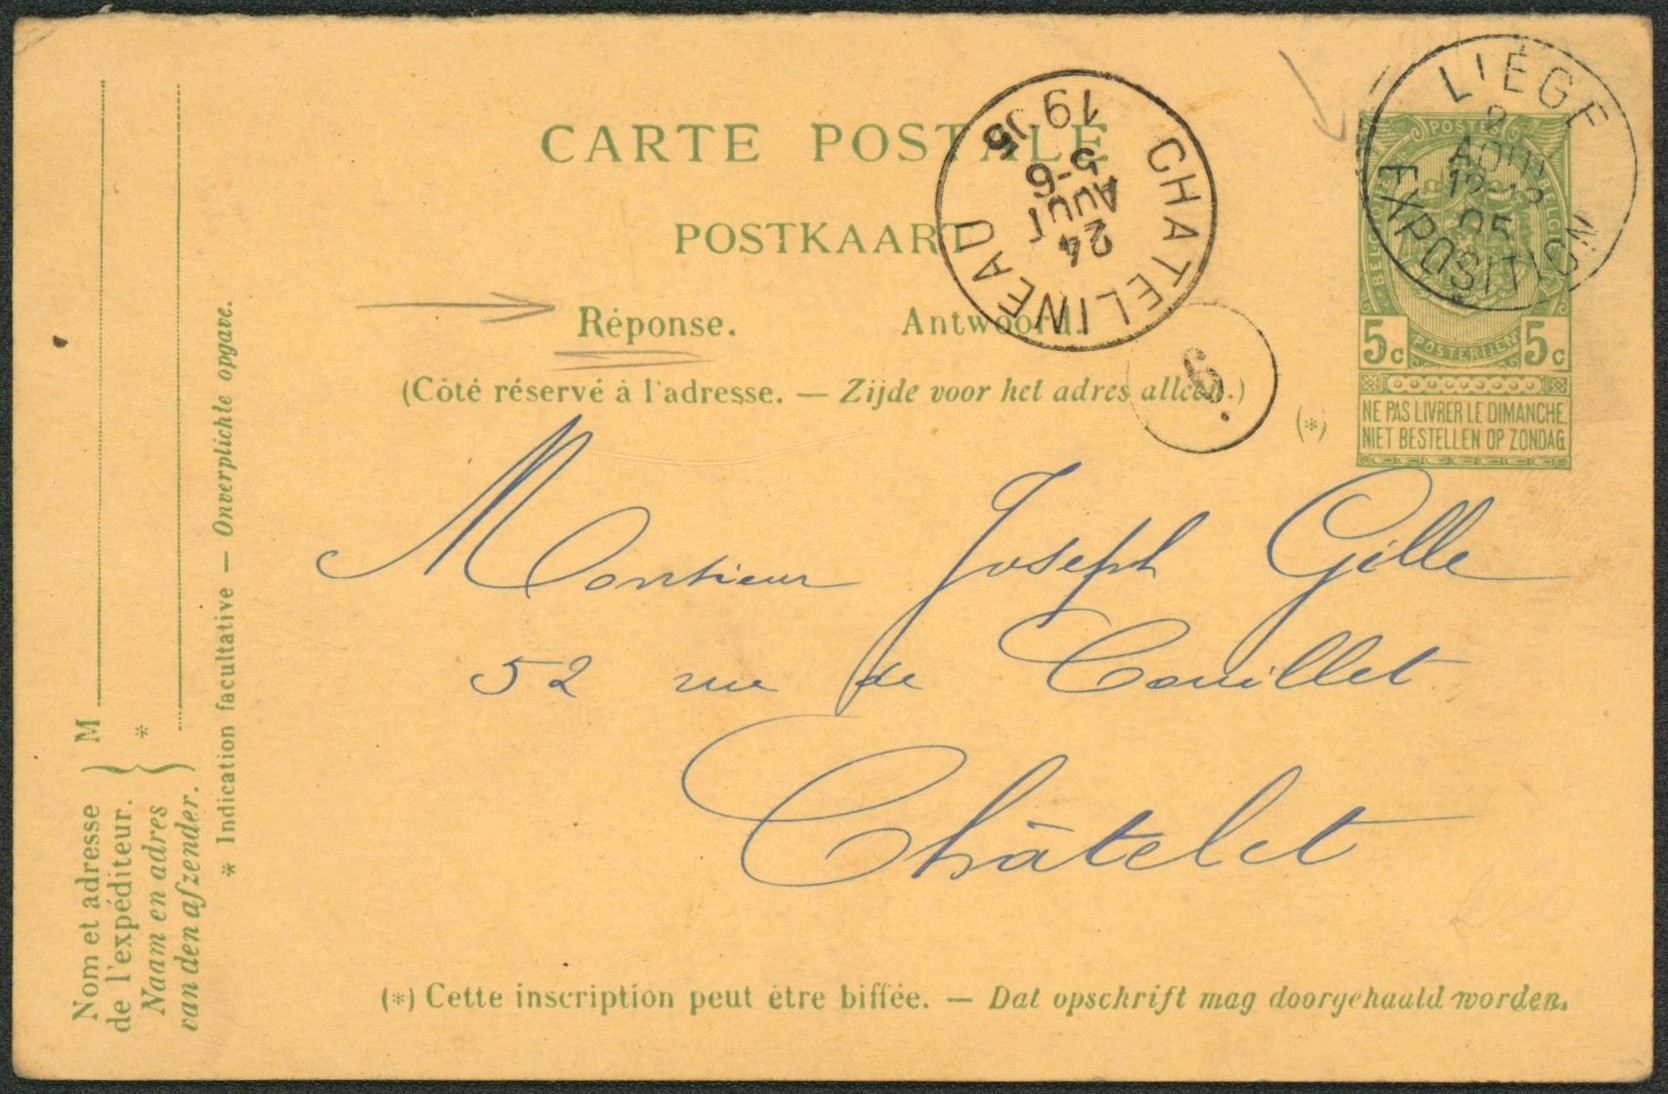 CARTE POSTALE
POSTKAART
Réponse. Antwoord.
(Côté réservé à l'adresse. — Zijde voor het adres alleen.)
(*)
CHATELINEAU
24
AOUT
5-6
19 05
6
LIÉGE
AOUT
12-13
05
EXPOSITION
POSTES
BELGIQUE
BELGIË
POSTERIJEN
5c 5c
NE PAS LIVRER LE DIMANCHE.
NIET BESTELLEN OP ZONDAG.
Monsieur Joseph Gille
52 rue de Couillet
Châtelet
(*) Cette inscription peut être biffée. — Dat opschrift mag doorgehaald worden.
Nom et adresse
de l'expéditeur.
Naam en adres
van den afzender.
M
*
* Indication facultative — Onverplichte opgave.